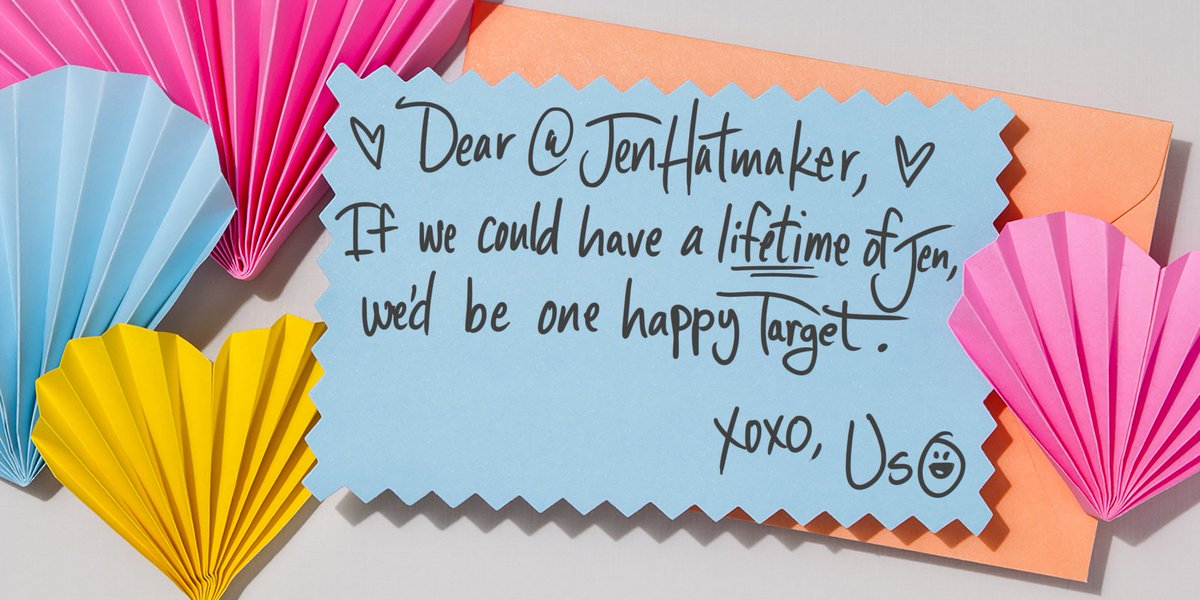 ♡ Dear @JenHatmaker, ♡
If we could have a lifetime of Jen,
we'd be one happy Target.
xoxo, Us